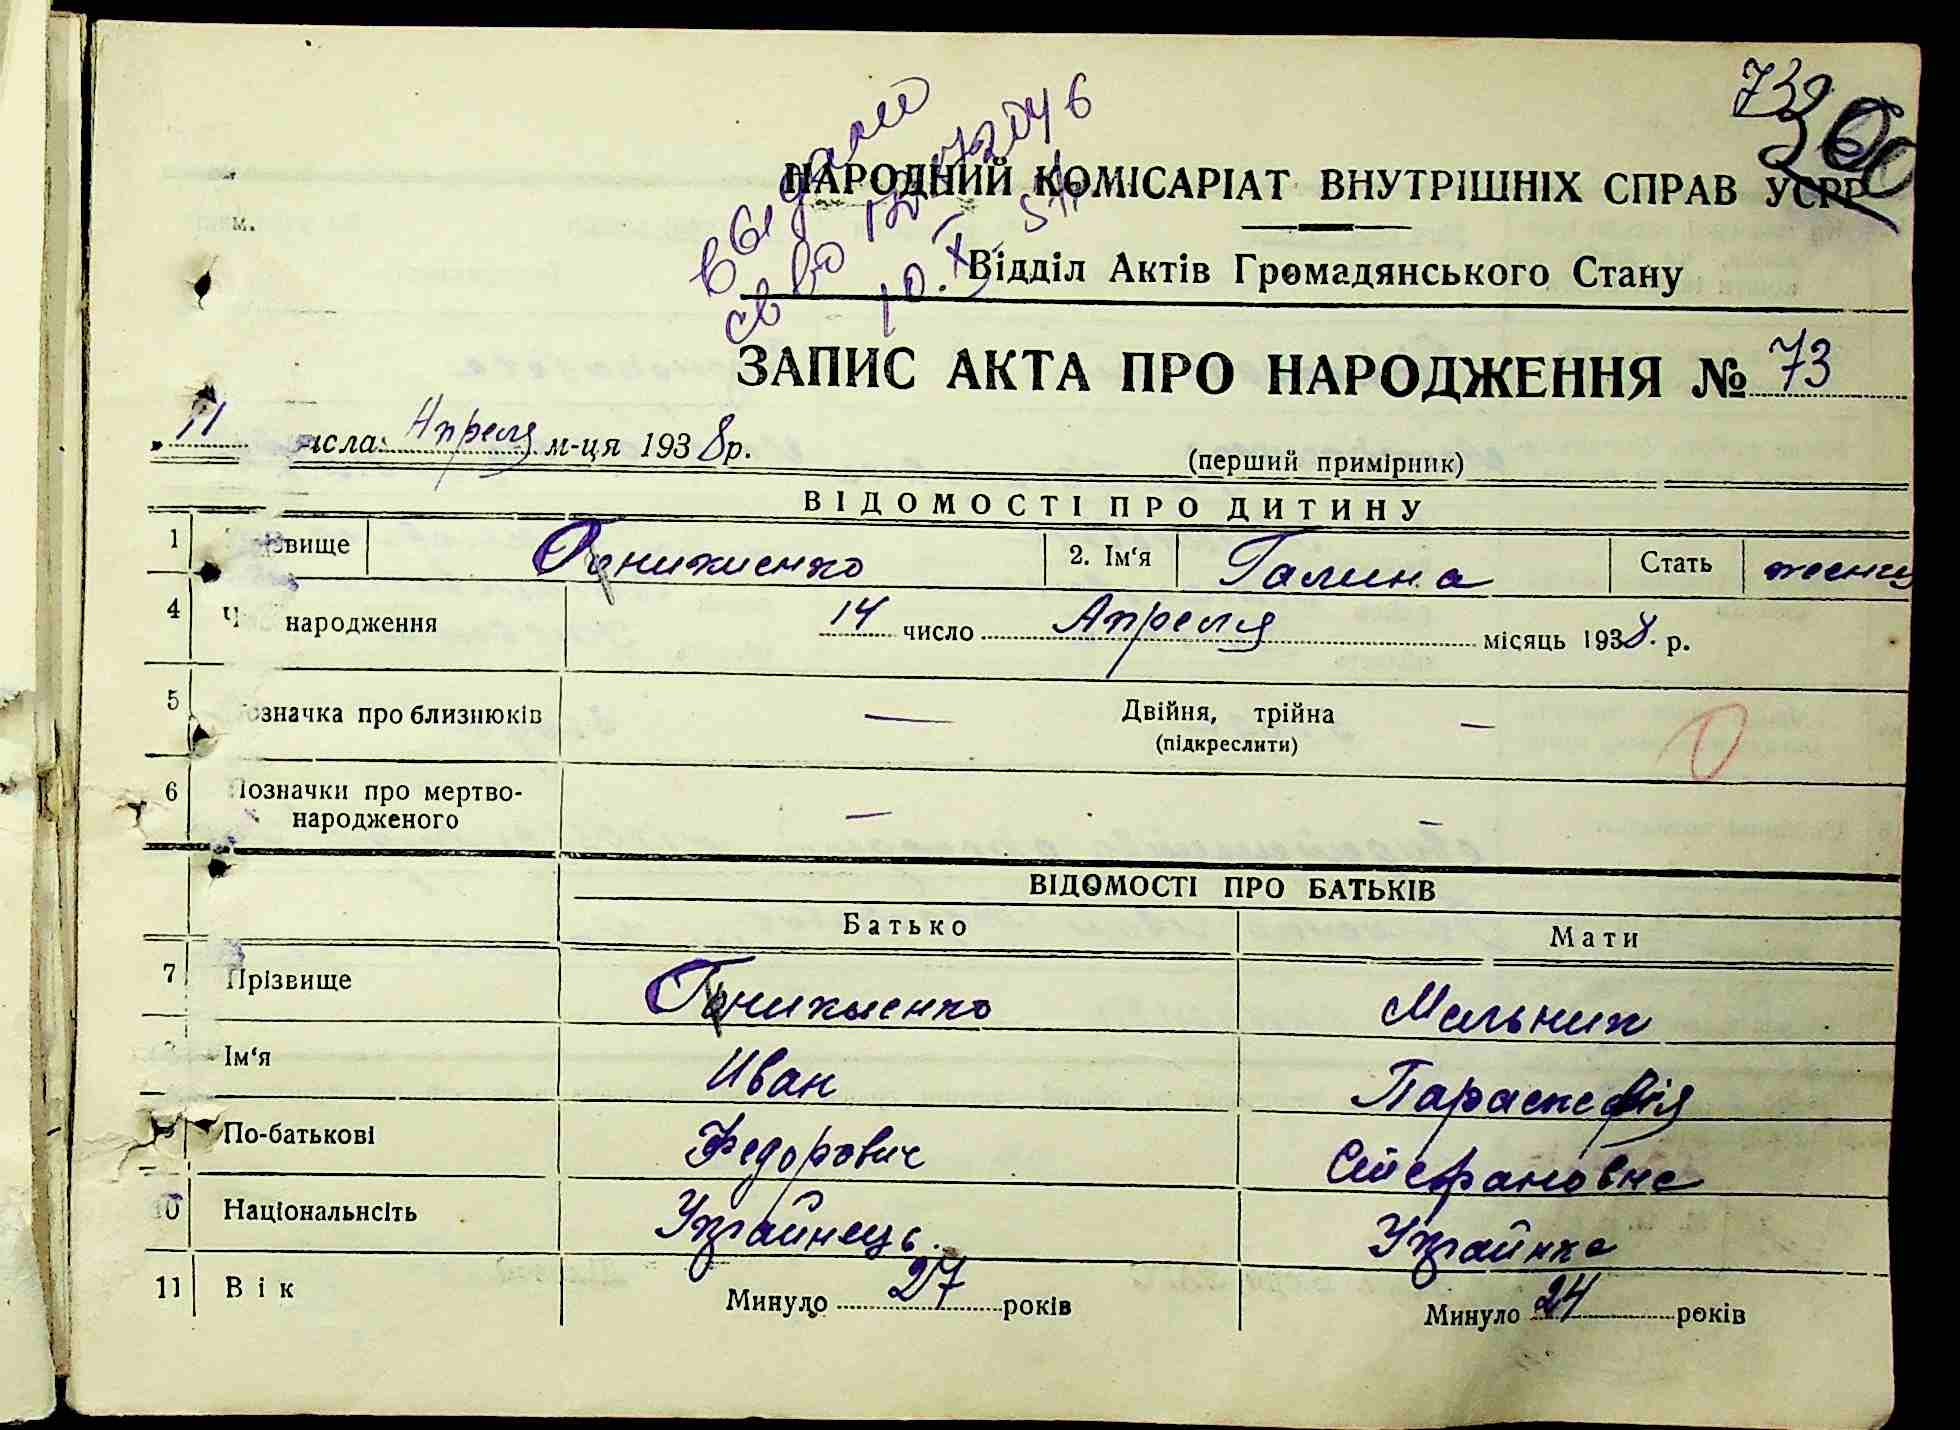 73
360
выдано
св во
10.X
НАРОДНИЙ КОМІСАРІАТ ВНУТРІШНІХ СПРАВ УСРР
м.
Відділ Актів Громадянського Стану
ЗАПИС АКТА ПРО НАРОДЖЕННЯ № 73
„ 11 числа Апреля м-ця 1938 р.
(перший примірник)
ВІДОМОСТІ ПРО ДИТИНУ
1 звище 2. Ім‘я Галина Стать
4 народження 14 число Апреля місяць 1938. р.
5 означка про близнюків — Двійня, трійна —
(підкреслити)
6 Позначки про мертво-
народженого — —
ВІДОМОСТІ ПРО БАТЬКІВ
Батько Мати
7 Прізвище Мельник
Ім‘я Иван Параскефія
9 По-батькові Федорович Стефановна
10 Національнсіть Украйнець. Украйнка
11 Вік Минуло 27 років Минуло 24 років